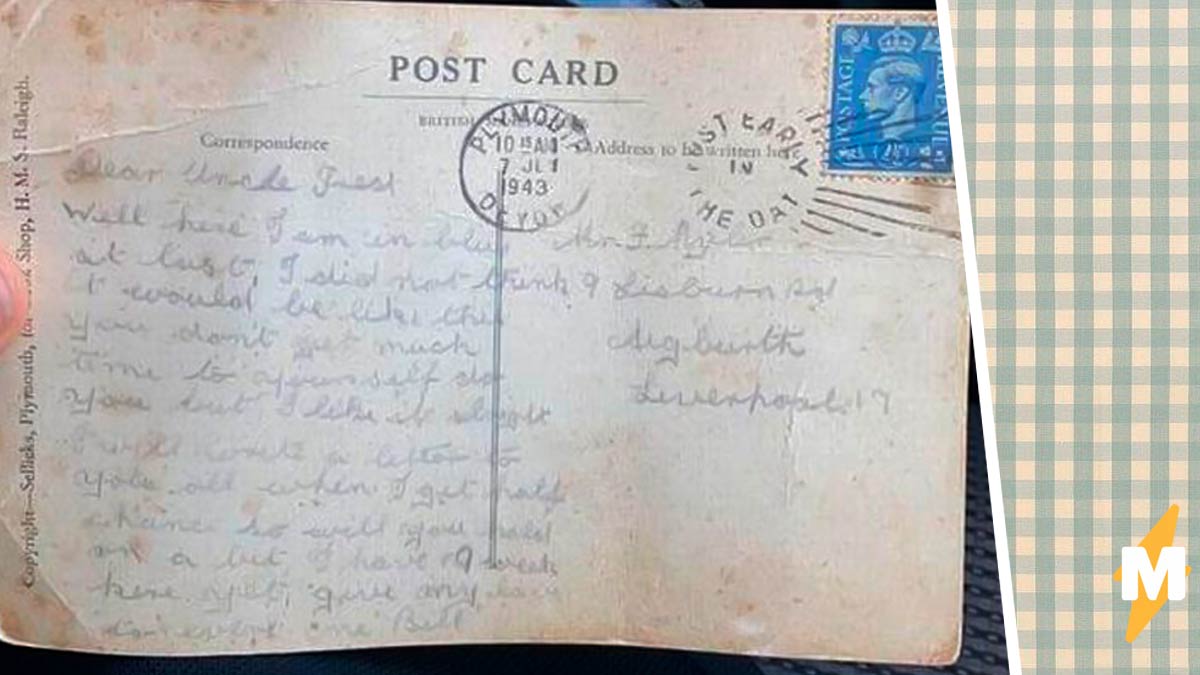 POST CARD
BRITISH
Correspondence
Address to be written here
PLYMOUTH
10 15 AM
7 JLY
1943
DEVON
POST EARLY
IN
THE DAY
POSTAGE
REVENUE
Copyright—Sellicks, Plymouth, Shop, H. M. S. Raleigh.
Dear Uncle
Well here I am in blue
at last, I did not think
it would be like this
You don't get much
time to yourself do
you but I like it alright
I will write a letter to
you all when I get half
chance so will you hold
on a bit I have 9 week
here yet, give my
to me Bill
Mr F
9 Lisburn Rd
Aigburth
Liverpool. 17
M